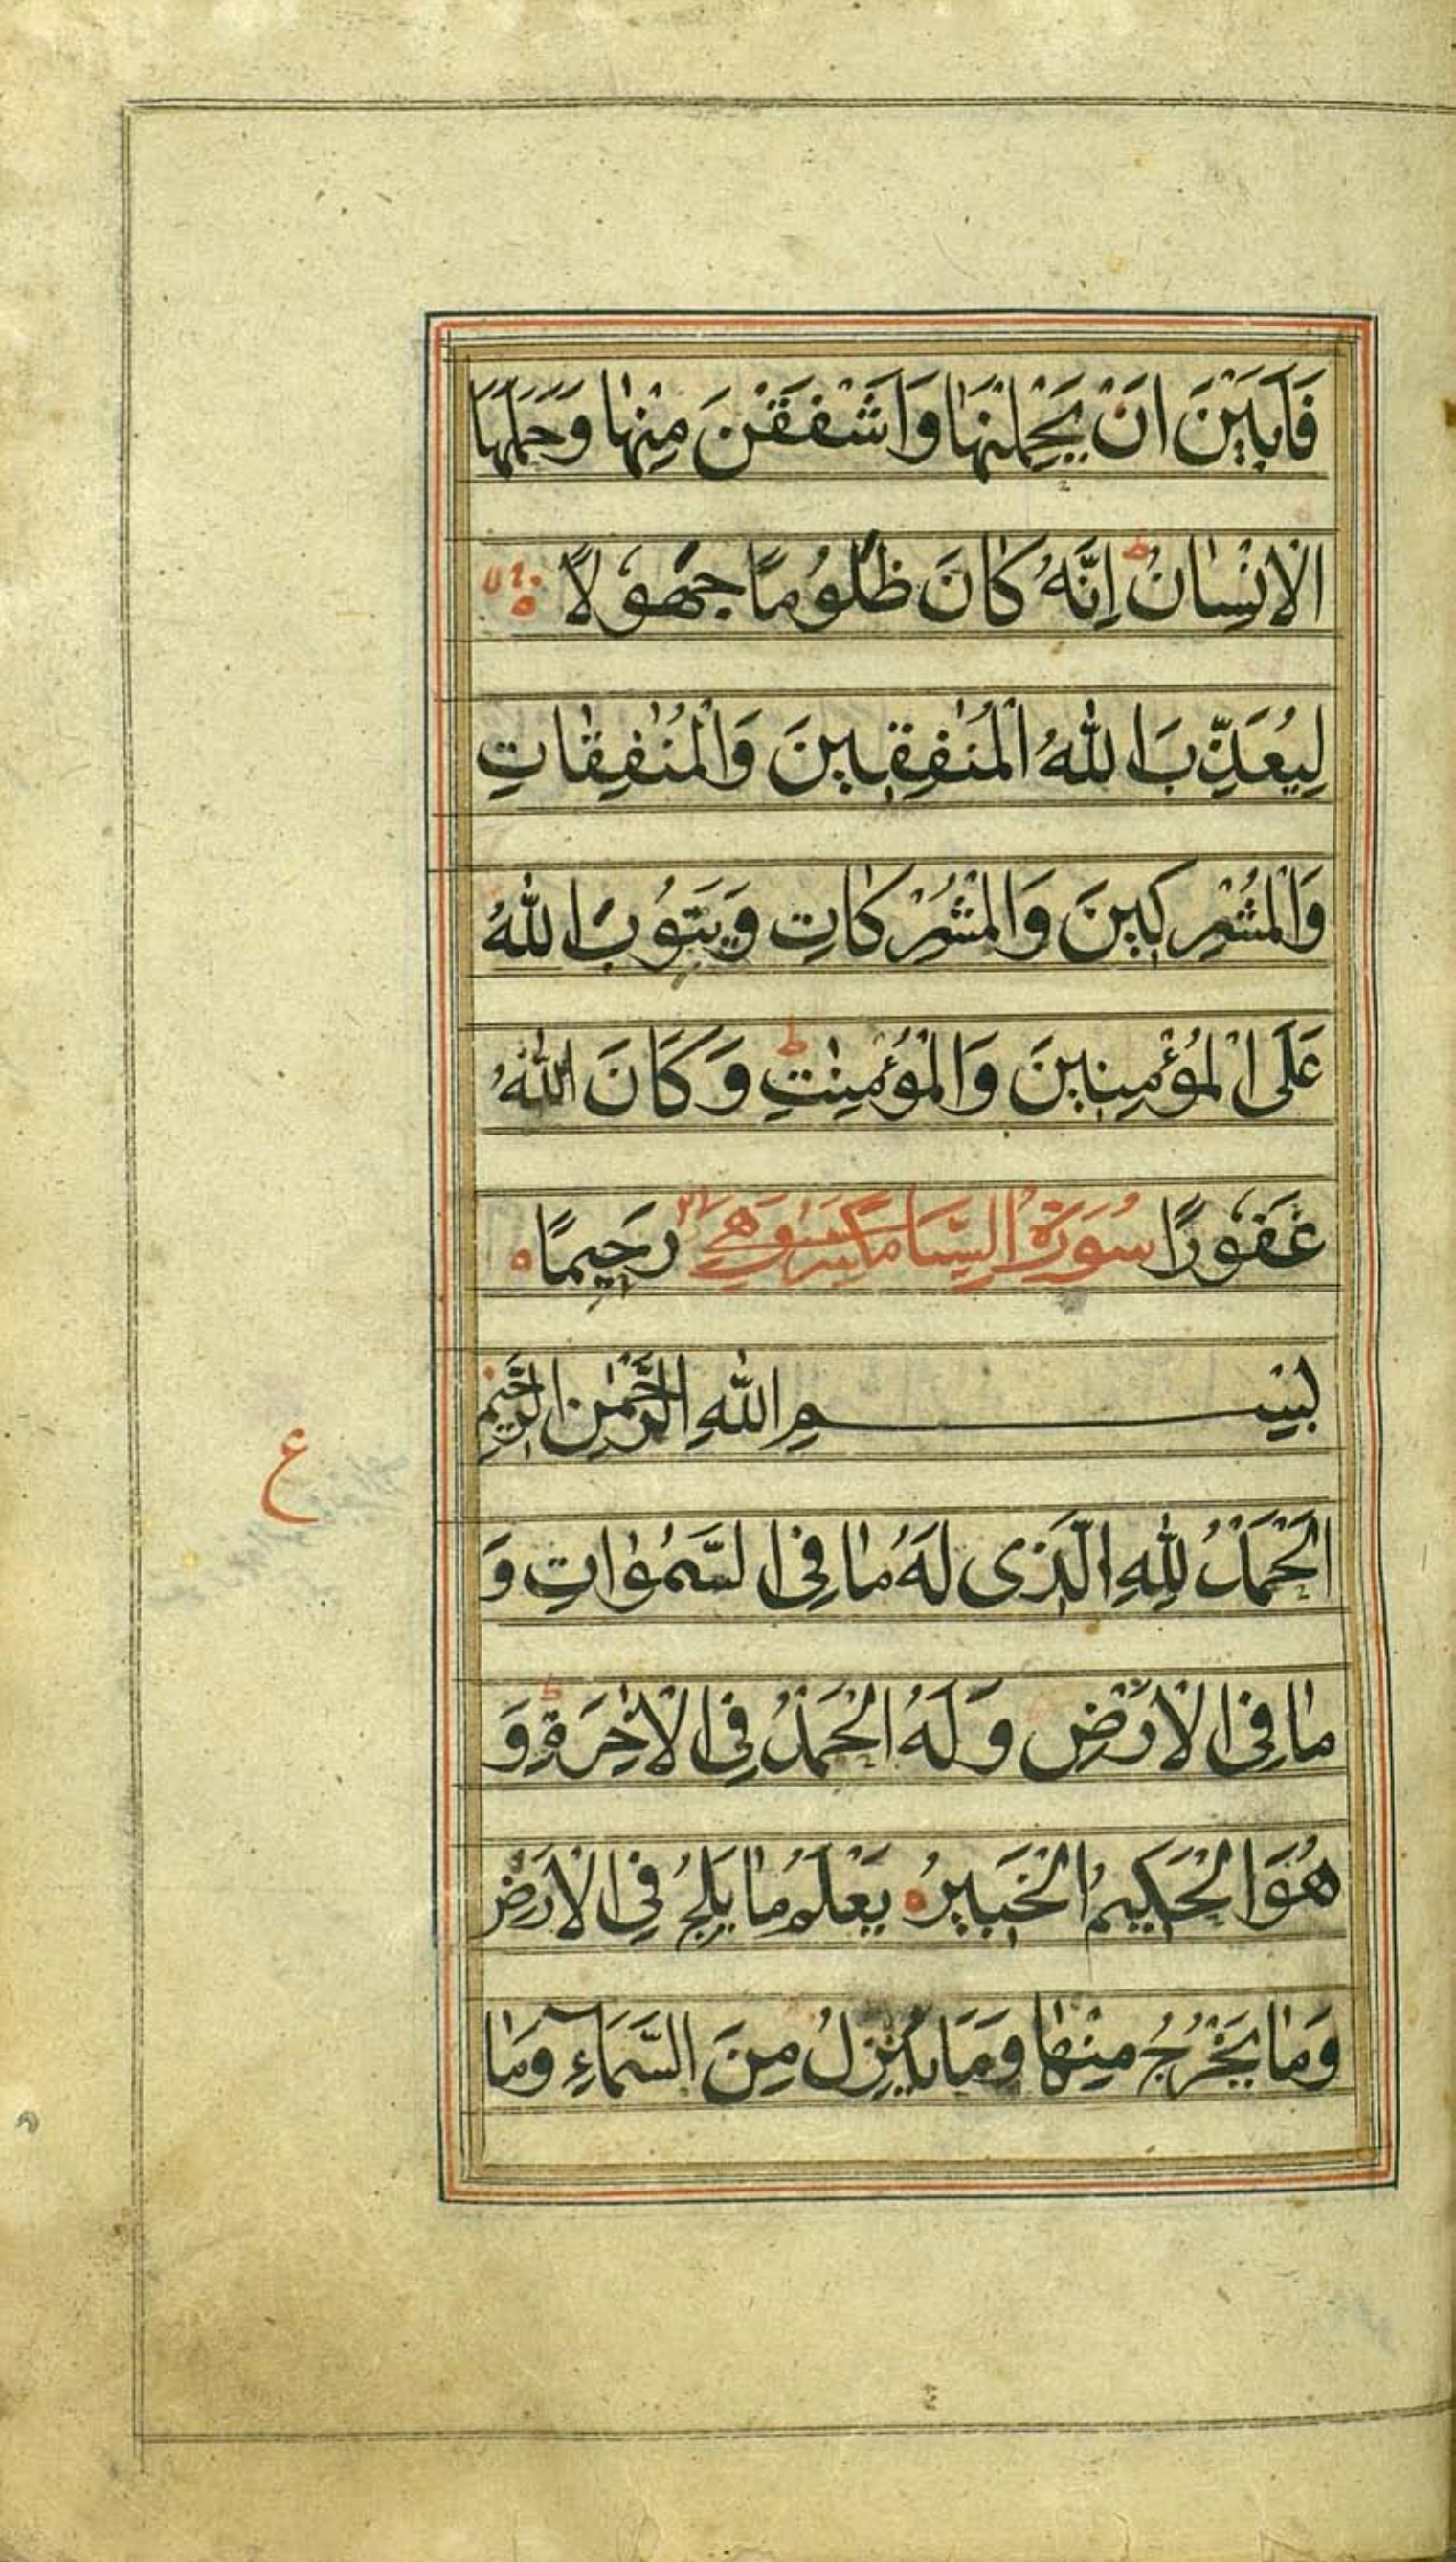 فَاَبَيْنَ اَنْ يَحْمِلْنَهَا وَاَشْفَقْنَ مِنْهَا وَحَمَلَهَا
الْاِنْسَانُ ط اِنَّهُ كَانَ ظَلُومًا جَهُولًا
لِيُعَذِّبَ اللّٰهُ الْمُنٰفِقِينَ وَالْمُنٰفِقَاتِ
وَالْمُشْرِكِينَ وَالْمُشْرِكَاتِ وَيَتُوبَ اللّٰهُ
عَلَى الْمُؤْمِنِينَ وَالْمُؤْمِنٰتِ ط وَكَانَ اللّٰهُ
غَفُورًا سُورَةُ السبا مكية وهي رَحِيمًا ه
بِسْمِ اللّٰهِ الرَّحْمٰنِ الرَّحِيمِ
ع
اَلْحَمْدُ لِلّٰهِ الَّذِى لَهُ مَا فِى السَّمٰوَاتِ وَ
مَا فِى الْاَرْضِ وَلَهُ الْحَمْدُ فِى الْاٰخِرَةِ ط وَ
هُوَ الْحَكِيمُ الْخَبِيرُ ه يَعْلَمُ مَا يَلِجُ فِى الْاَرْضِ
وَمَا يَخْرُجُ مِنْهَا وَمَا يَنْزِلُ مِنَ السَّمَآءِ وَمَا